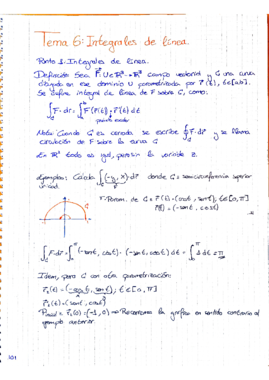 Tema 6: Integrales de línea.
Punto 1- Integrales de línea.
Definición Sea F: U⊂ℝⁿ → ℝⁿ campo vectorial y C una curva
contenida en ese dominio U parametrizada por r(t), t∈[a,b].
Se define integral de línea de F sobre C, como:
∫_C F· dr = ∫_a^b F(r(t)) · r'(t) dt
producto escalar
Nota: Cuando C es cerrada se escribe ∮_C F·dr y se llama
circulación de F sobre la curva C
En ℝ³ todo es igual, pero sin la variable z.
Ejemplos: Calcula ∫_C (-y, x) dr donde C = semicircunferencia superior
r=Param. de C = r(t) = (cost, sent), t∈[0, π]
r'(t) = (-sent, cost)
∫_C F·dr = ∫_0^π (-sent, cost) · (-sent, cost) dt = ∫_0^π 1 dt = π
Idem, pero C con otra parametrización:
r₁(t) = (-cost, sent); t∈[0, π]
r₁'(t) = (sent, cost)
r₁(0) = (-1, 0) → Recorremos la gráfica en sentido contrario al
ejemplo anterior
101